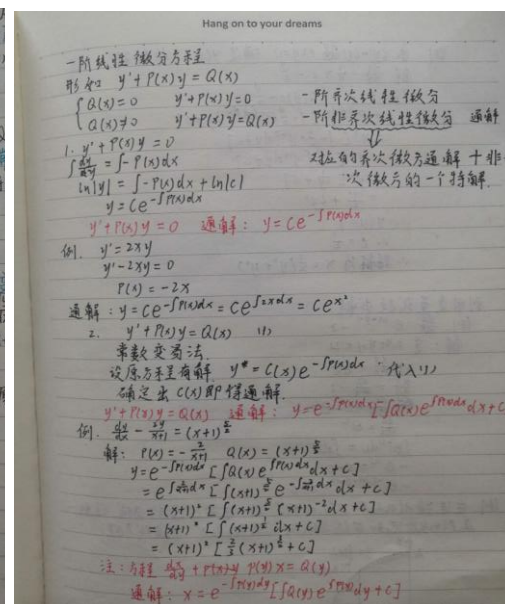 Hang on to your dreams
一阶线性微分方程
形如 y'+P(x)y=Q(x)
{Q(x)=0 y'+P(x)y=0 一阶齐次线性微分
Q(x)≠0 y'+P(x)y=Q(x) 一阶非齐次线性微分 通解
⇓
对应的齐次微方通解+非
次微方的一个特解.
1. y'+P(x)y=0
ln|y|=∫-P(x)dx+ln|c|
y=Ce^{-∫P(x)dx}
y'+P(x)y=0 通解: y=Ce^{-∫P(x)dx}
例. y'=2xy
y'-2xy=0
P(x)=-2x
通解: y=Ce^{-∫P(x)dx}=Ce^{∫2xdx}=Ce^{x²}
2. y'+P(x)y=Q(x) (1)
常数变易法.
设原方程有解 y*=C(x)e^{-∫P(x)dx} 代入(1)
确定出C(x)即得通解.
y'+P(x)y=Q(x) 通解: y=e^{-∫P(x)dx}[∫Q(x)e^{∫P(x)dx}dx+C
例.
解: P(x)=-2/(x+1) Q(x)=(x+1)^{5/2}
y=e^{-∫P(x)dx}[∫Q(x)e^{∫P(x)dx}dx+C]
=e^{∫2/(x+1)dx}[∫(x+1)^{5/2}e^{-∫2/(x+1)dx}dx+C]
=(x+1)²[∫(x+1)^{5/2}(x+1)^{-2}dx+C]
=(x+1)²[∫(x+1)^{1/2}dx+C]
=(x+1)²[2/3(x+1)^{3/2}+C]
注: 方程 P(y)x=Q(y)
通解: x=e^{-∫P(y)dy}[∫Q(y)e dy+C]